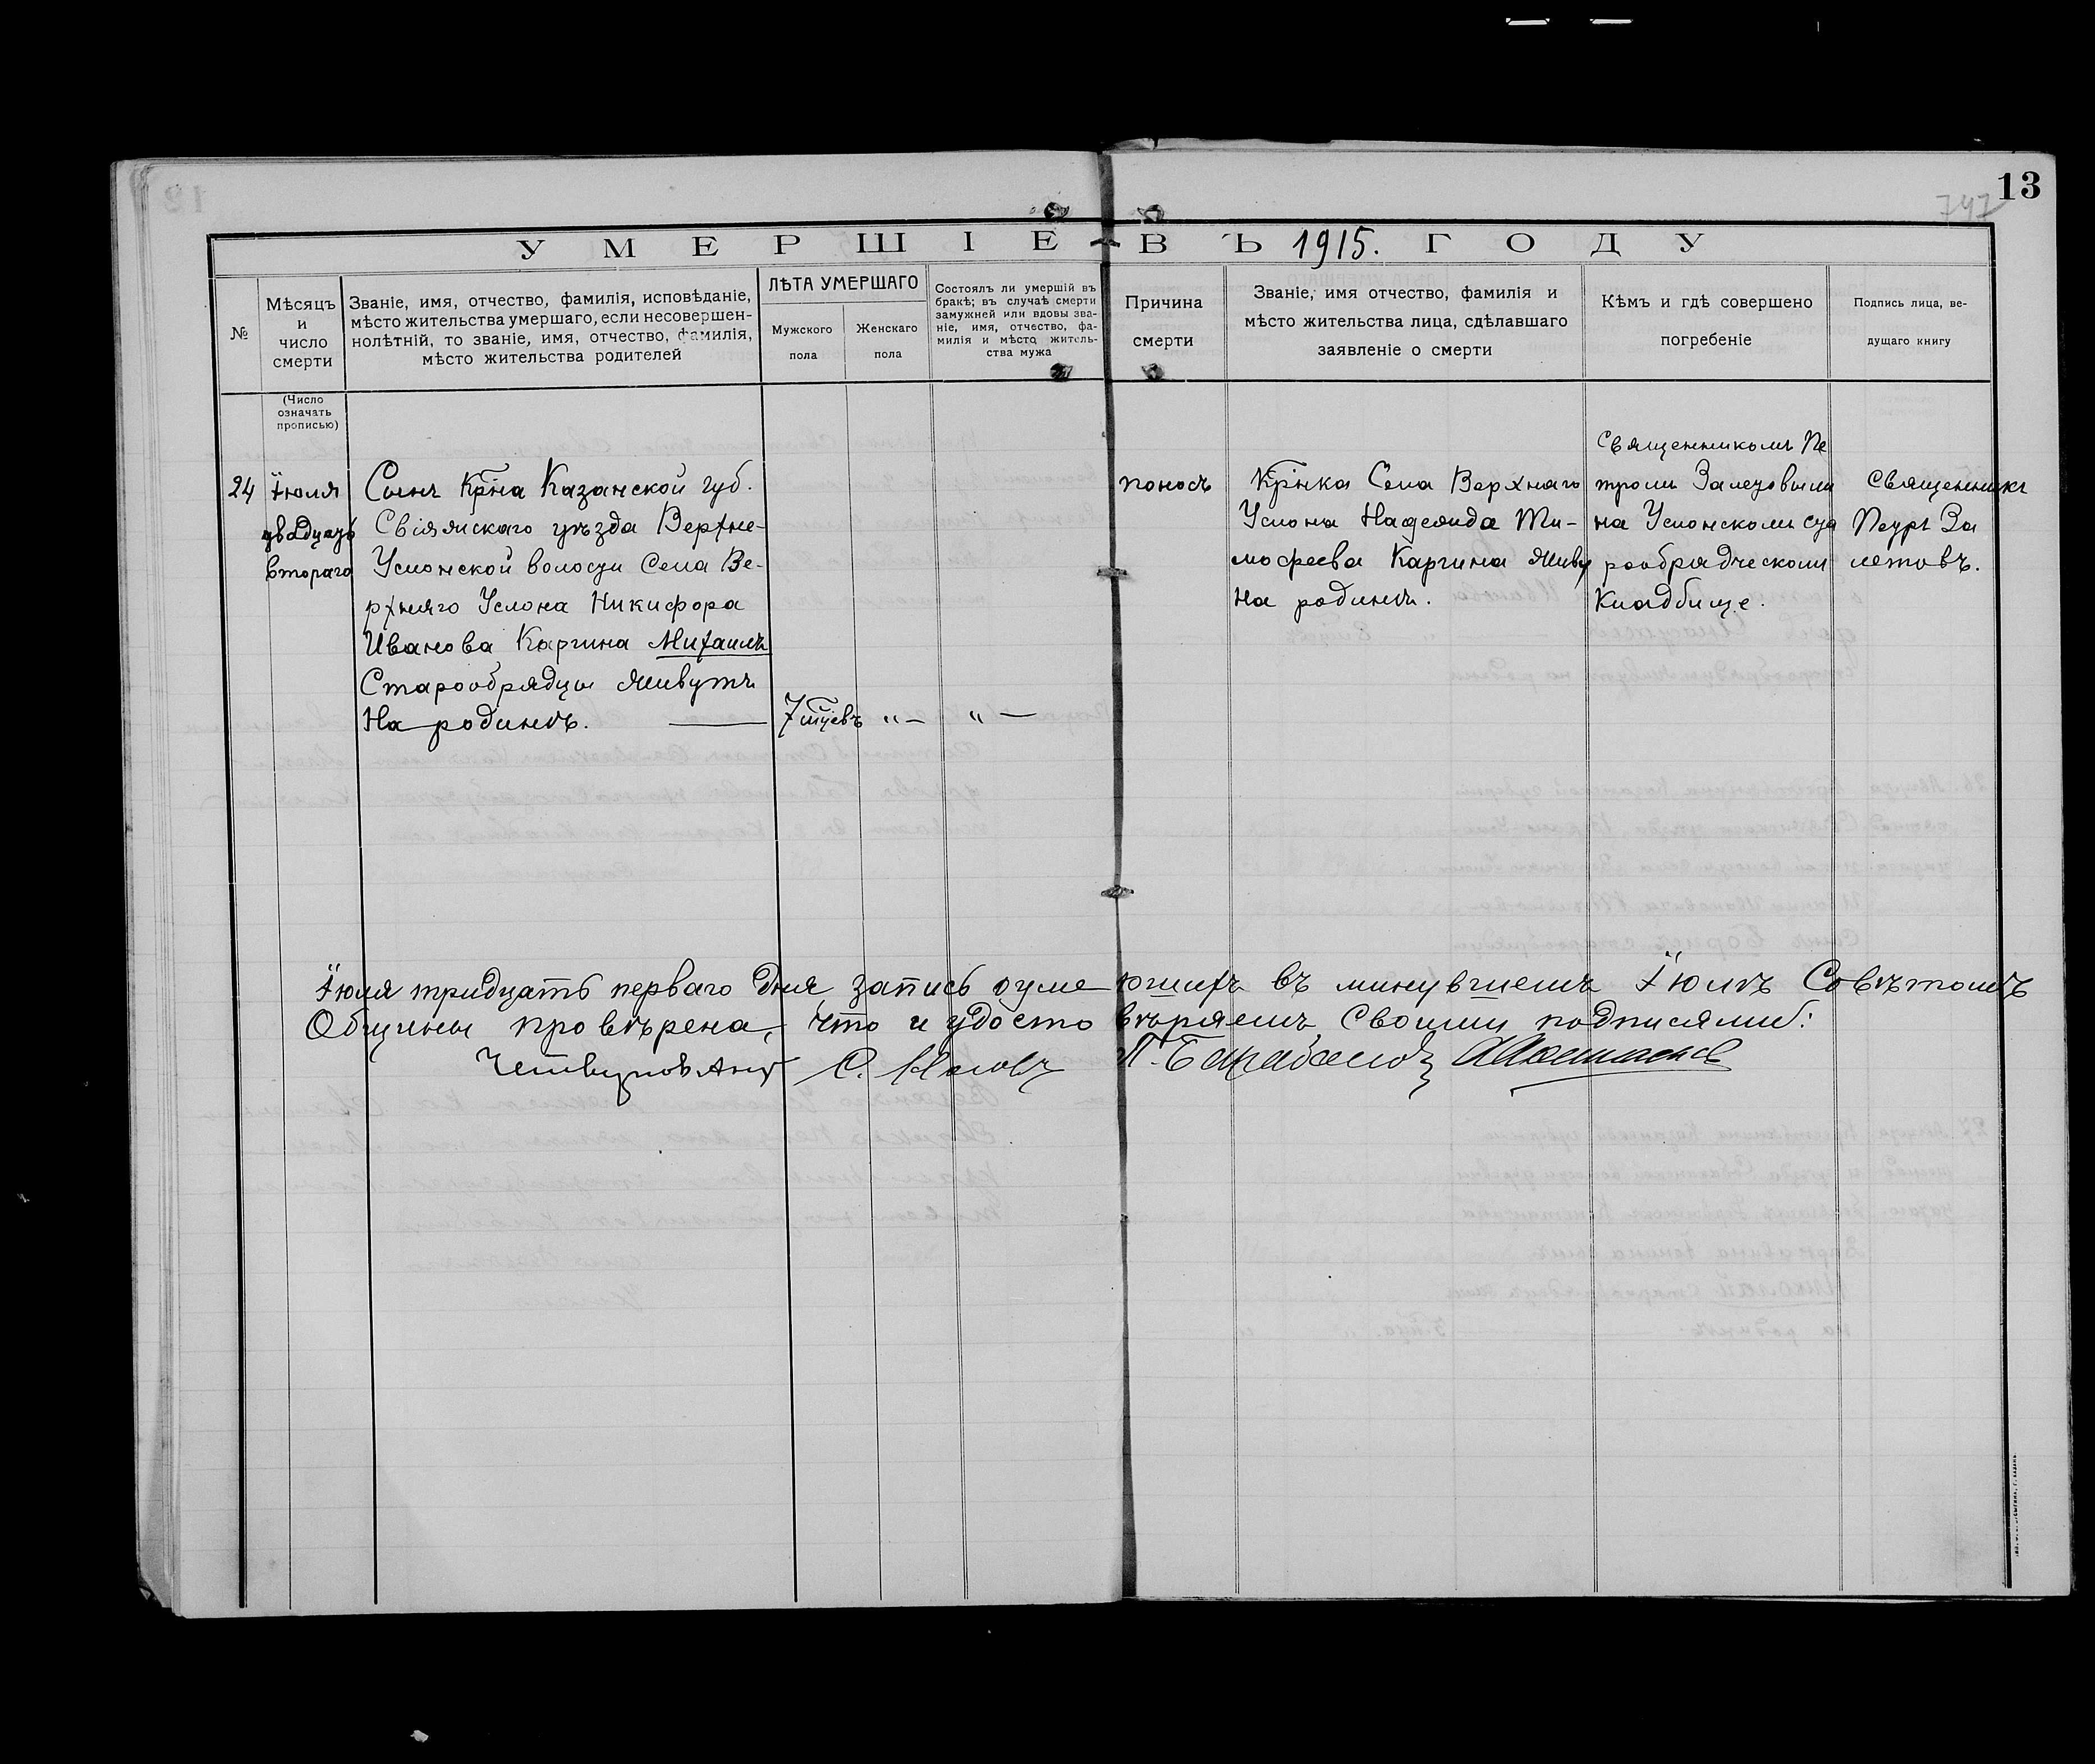 13
747
УМЕРШІЕ ВЪ 1915. ГОДУ
№
Мѣсяцъ
и
число
смерти
Званіе, имя, отчество, фамилія, исповѣданіе,
мѣсто жительства умершаго, если несовершен-
нолѣтній, то званіе, имя, отчество, фамилія,
мѣсто жительства родителей
ЛѢТА УМЕРШАГО
Мужского
пола
Женскаго
пола
Состоялъ ли умершій въ
бракѣ; въ случаѣ смерти
замужней или вдовы зва-
ніе, имя, отчество, фа-
милія и мѣсто житель-
ства мужа
Причина
смерти
Званіе, имя отчество, фамилія и
мѣсто жительства лица, сдѣлавшаго
заявленіе о смерти
Кѣмъ и гдѣ совершено
погребеніе
Подпись лица, ве-
дущаго книгу
(Число
означать
прописью)
24
Іюля
двадцать
втораго
Сынъ Крна Казанской губ.
Свіяжскаго уѣзда Верхне-
Услонской волости Села Ве-
рхняго Услона Никифора
Иванова Каргина Михаилъ
Старообрядцы живутъ
На родинѣ. —
7 мцевъ "— "—
поносъ
Крнка Села Верхнаго
Услона Надежда Ти-
мофеева Каргина живу
На родинѣ.
Священникомъ Пе
тромъ Залетовымъ
на Услонскомъ ста
рообрядческомъ
Кладбище.
Священникъ
Петръ За
летовъ.
Іюля тридцать перваго дня запись оумершихъ въ минувшемъ Іюлѣ Совѣтомъ
Общины провѣрена, что и удостовѣряемъ своими подписями:
С. Носовъ П. Барабановъ